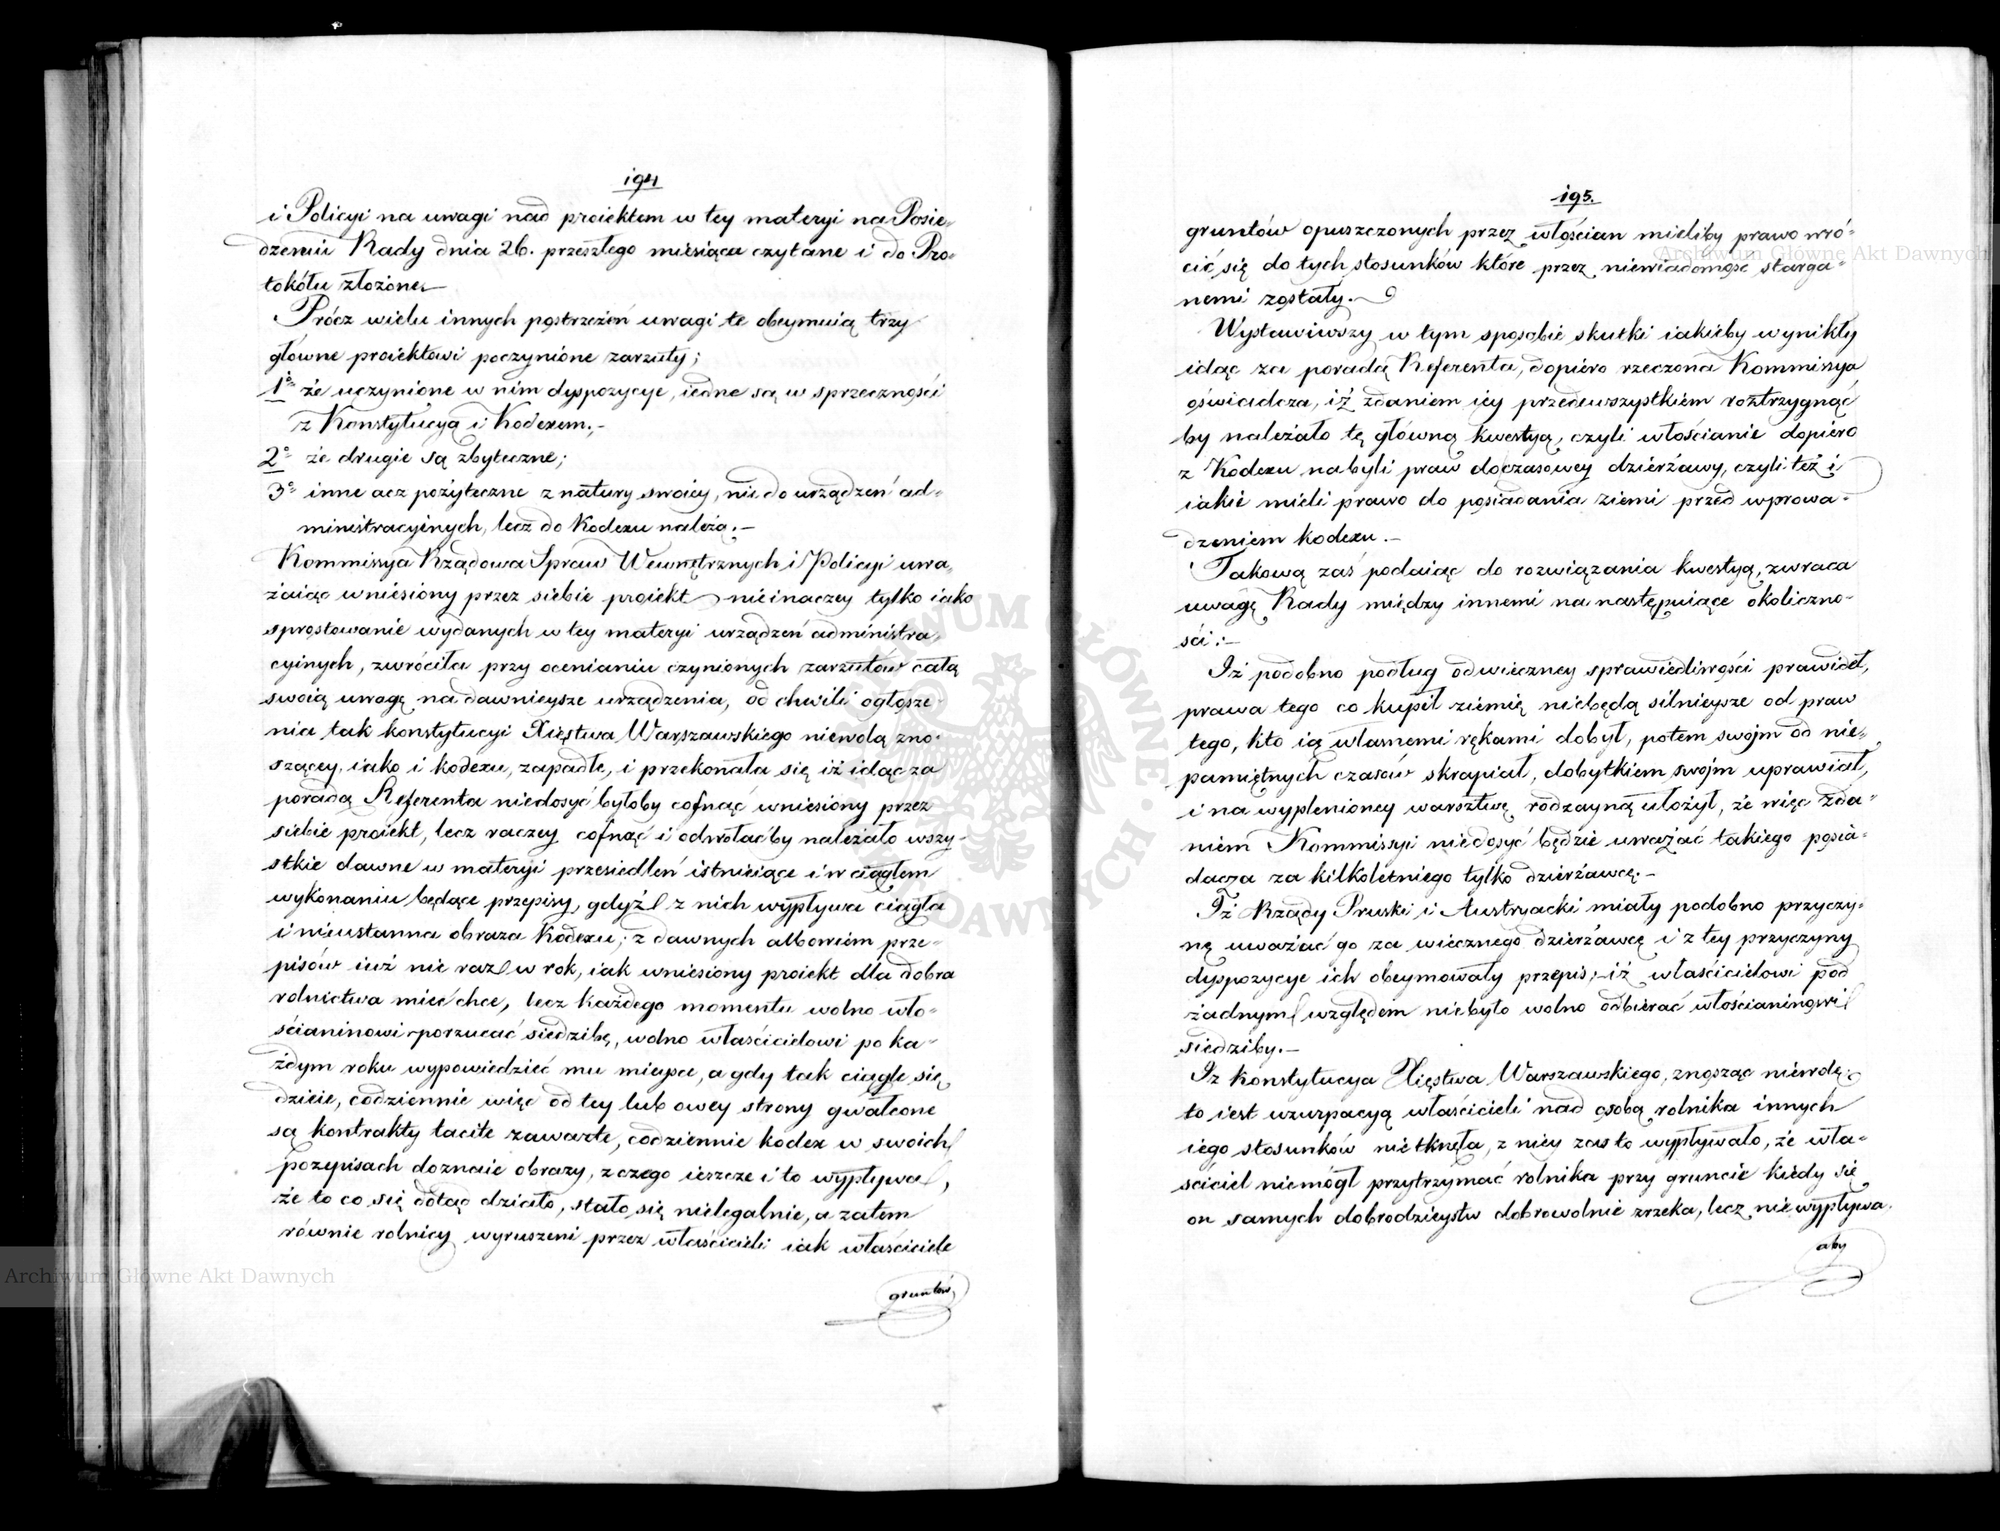 194
i Policyi na uwagi nad proiektem w tey materyi na Posie-
dzeniu Rady dnia 26. przeszłego miesiąca czytane i do Pro-
tokółu złożone.
Prócz wielu innych postrzeżeń uwagi te obeymuią trzy
główne proiektowi poczynione zarzuty;
1o że uczynione w nim dyspozycye, iedne są w sprzeczności
z Konstytucyą i Kodexem.;-
2o że drugie są zbyteczne;
3o inne acz pożyteczne z natury swoiey, nie do urządzeń ad-
ministracyinych, lecz do Kodexu należą.-
Kommissya Rządowa Spraw Wewnętrznych i Policyi uwa-
żaiąc wniesiony przez siebie proiekt nieinaczey tylko iako
sprostowanie wydanych w tey materyi urządzeń administra-
cyinych, zwróciła przy ocenianiu czynionych zarzutów całą
swoią uwagę na dawnieysze urządzenia, od chwili ogłosze-
nia tak konstytucyi Xięstwa Warszawskiego niewolą zno-
szącey, iako i kodexu, zapadłe, i przekonała się iż idąc za
poradą Referenta niedosyć byłoby cofnąć wniesiony przez
siebie proiekt, lecz raczey cofnąć i odwołać by należało wszy-
stkie dawne w materyi przesiedleń istnieiące i w ciągłem
wykonaniu będące przepisy, gdyż z nich wypływa ciągła
i nieustanna obraza Kodexu; z dawnych albowiem prze-
pisów iuż nie raz w rok, iak wniesiony proiekt dla dobra
rolnictwa mieć chce, lecz każdego momentu wolno wło-
ścianinowi porzucać siedzibę, wolno właścicielowi po ka-
żdym roku wypowiedzieć mu mieysce, a gdy tak ciągle się
dzieie, codziennie więc od tey lub owey strony gwałcone
są kontrakty tacite zawarte, codziennie kodex w swoich
przepisach doznaie obrazy, z czego ieszcze i to wypływa,
że to co się dotąd działo, stało się nielegalnie, a zatem
równie rolnicy wyruszeni przez właścicieli iak właściciele
gruntów
195.
gruntów opuszczonych przez włościan mieliby prawo wró-
cić się do tych stosunków które przez niewiadomość starga-
nemi zostały.-
Wystawiwszy w tym sposobie skutki iakieby wynikły
idąc za poradą Referenta, dopiero rzeczona Kommissya
oświadcza, iż zdaniem iey przedewszystkiem roztrzygnąć
by należało tę główną kwestyą, czyli włościanie dopiero
z Kodexu nabyli praw doczasowey dzierżawy, czyli też i
iakie mieli prawo do posiadania ziemi przed wprowa-
dzeniem kodexu.-
Takową zaś podaiąc do rozwiązania kwestyą, zwraca
uwagę Rady między innemi na następuiące okoliczno-
ści:-
Iż podobno podług odwieczney sprawiedliwości prawideł,
prawa tego co kupił ziemię niebędą silnieysze od praw
tego, kto ią własnemi rękami dobył, potem swoim od nie-
pamiętnych czasów skrapiał, dobytkiem swoim uprawiał,
i na wyplenioney warsztwę rodzayną ułożył, że więc zda-
niem Kommissyi niedosyć będzie uważać takiego posia-
dacza za kilkoletniego tylko dzierżawcę.-
Iż Rządy Pruski i Austryacki miały podobno przyczy-
nę uważać go za wiecznego dzierżawcę i z tey przyczyny
dyspozycye ich obeymowały przepis; iż właścicielowi pod
żadnym względem niebyło wolno odbierać włościaninowi
siedziby.-
Iż Konstytucya Xięstwa Warszawskiego, znosząc niewolę
to iest uzurpacyą właścicieli nad osobą rolnika innych
iego stosunków nietknęła, z niey zaś to wypływało, że wła-
ściciel niemógł przytrzymać rolnika przy gruncie kiedy się
on samych dobrodzieystw dobrowolnie zrzeka, lecz nie wypływa
aby
Archiwum Główne Akt Dawnych
Archiwum Główne Akt Dawnych
ARCHIWUM GŁÓWNE AKT DAWNYCH